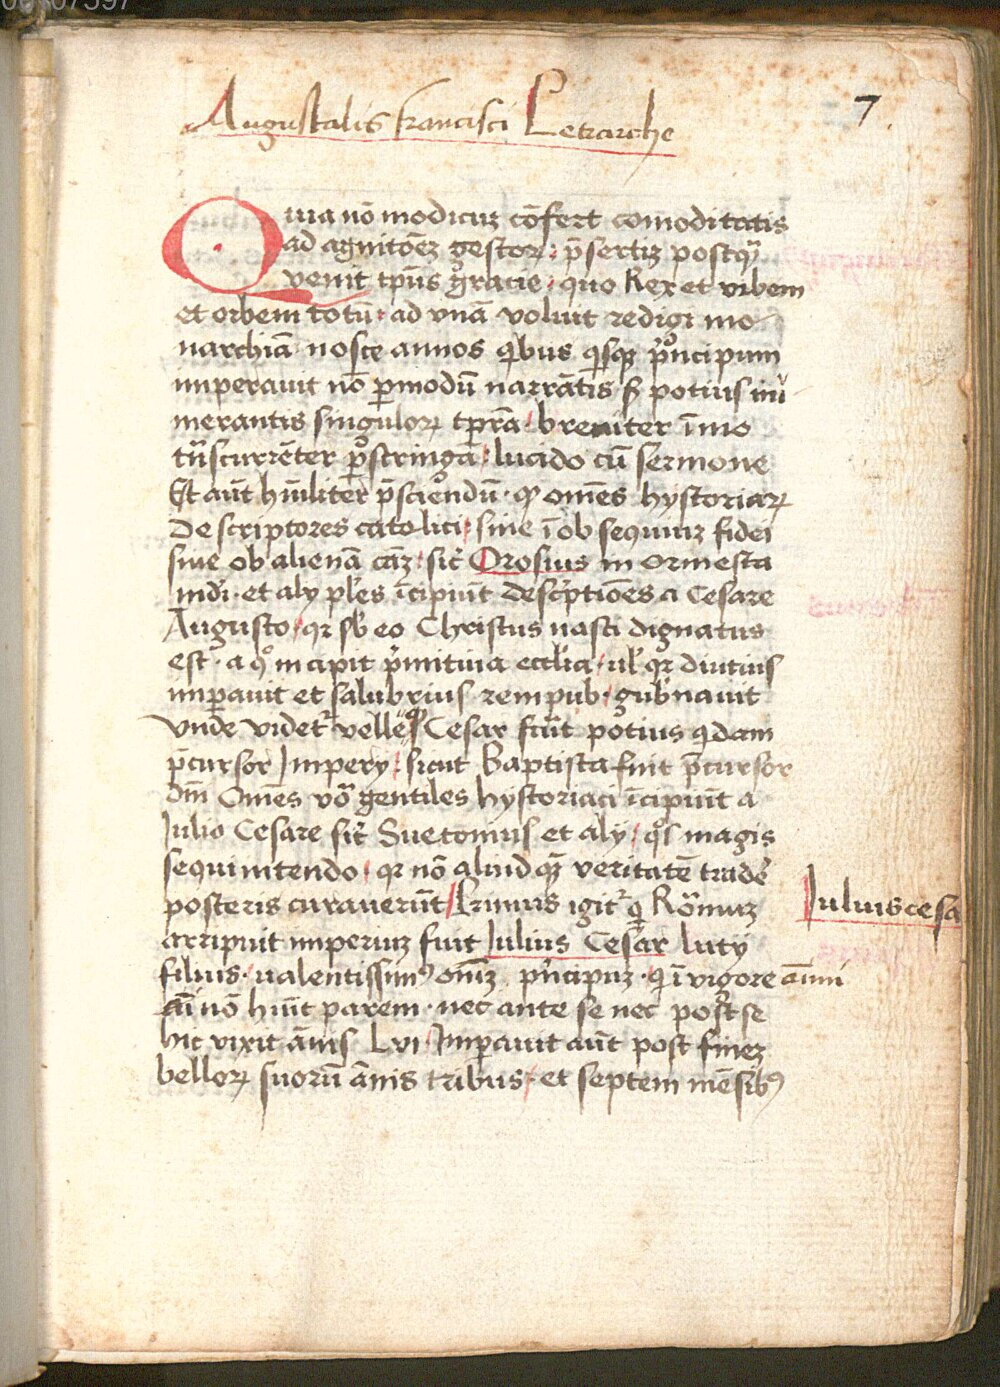 Augustalis Francisci Petrarche
7
Quia nō modicuz cōfert comoditatis
ad agnitōēz gestoꝝ : p̄sertiz postqᷓ
venit tp̄us gracie · quo Rex et vrbem
et orbem totū · ad vnā voluit redigi mo
narchiā nosce annos qͥbus qͥsqꝫ pͥncipum
imperavit nō ꝑ modū narrātis sꝫ potius inu
merantis singuloꝝ tp̄ra / breuiter īmo
trāscurrēter ꝑstringā : lucido cū sermone
Et aūt huīliter p̄sciendū · ꝙ om̄es hystoriaꝝ
Descriptores catolici / siue ī obsequiuz fidei
siue ob alienā cāz / sic̄ Orosius in ormesta
mūdi · et alÿ pl̄es īcipiūt descͥptiōes a Cesare
Augusto / qꝛ sb̄ eo Christus nasci dignatus
est · a qͦ incipit pͥmitiua eccl̄ia / ul̓ qꝛ diutius
imꝑauit et salubrius rempub · gub̓nauit
vnde videtᷣ velle ꝙ Cesar fuīt potius qͥdam
p̄cursor Imperÿ / sicut Baptista fuit p̄cursor
dn̄i Om̄es vō gentiles hystoriaci īcipiūt a
Iulio Cesare sic̄ Suetonius et alÿ / qͦs magis
sequi intendo / qꝛ nō aliud qᷓ veritatē trade᷑
posteris curauerūt / Primus igitᷣ qͥ Rōmuz
arripuit imperiuz fuit Iulius Cesar lutÿ
filius · ualentissimꝰ om̄iz pͥncipuz · qͥ ī vigore aīmi
nō hūit parem · nec ante se nec post se
hic vixit ānis LVI · Imꝑauit aūt post finez
belloꝝ suorū ānis tribus / et septem mēsibꝰ
Iulius cesa